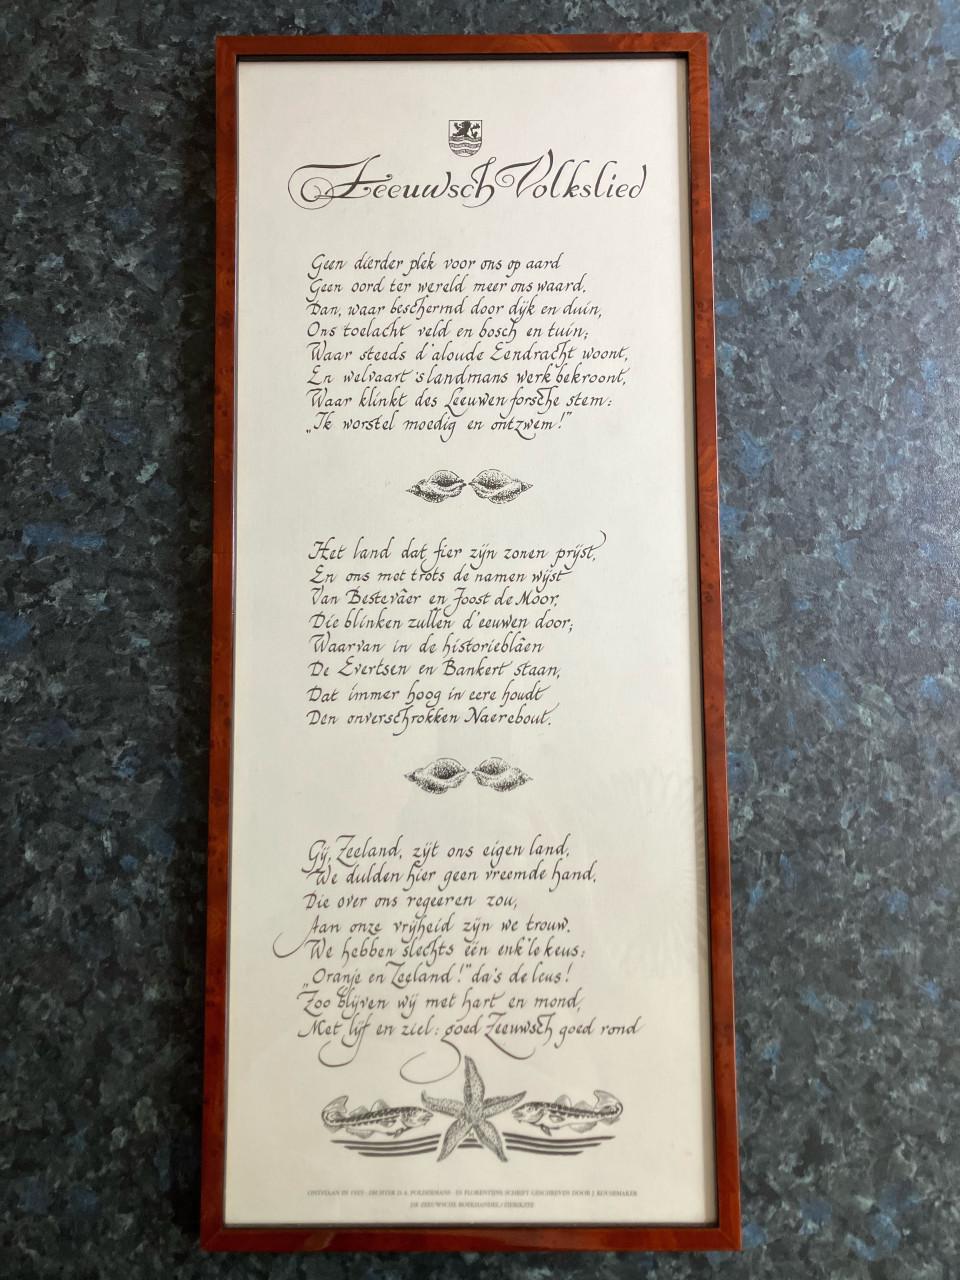 Zeeuwsch Volkslied
Geen dierder plek voor ons op aard
Geen oord ter wereld meer ons waard,
Dan, waar beschermd door dijk en duin,
Ons toelacht veld en bosch en tuin;
Waar steeds d'aloude Eendracht woont,
En welvaart 's landmans werk bekroont,
Waar klinkt des Leeuwen forsche stem:
„Ik worstel moedig en ontzwem!"
Het land dat fier zijn zonen prijst,
En ons met trots de namen wijst
Van Bestevâer en Joost de Moor,
Die blinken zullen d'eeuwen door;
Waarvan in de historieblâen
De Evertsen en Bankert staan,
Dat immer hoog in eere houdt
Den onverschrokken Naerebout.
Gij, Zeeland, zijt ons eigen land,
We dulden hier geen vreemde hand,
Die over ons regeeren zou,
Aan onze vrijheid zijn we trouw.
We hebben slechts één enk'le keus:
„Oranje en Zeeland!" da's de leus!
Zoo blijven wij met hart en mond,
Met lijf en ziel: goed Zeeuwsch goed rond
ONTSTAAN IN - DICHTER D.A. POLDERMANS - IN FLORENTIJNS SCHRIFT GESCHREVEN DOOR J. KOUSEMAKER
DE ZEEUWSCHE BOEKHANDEL / ZIERIKZEE